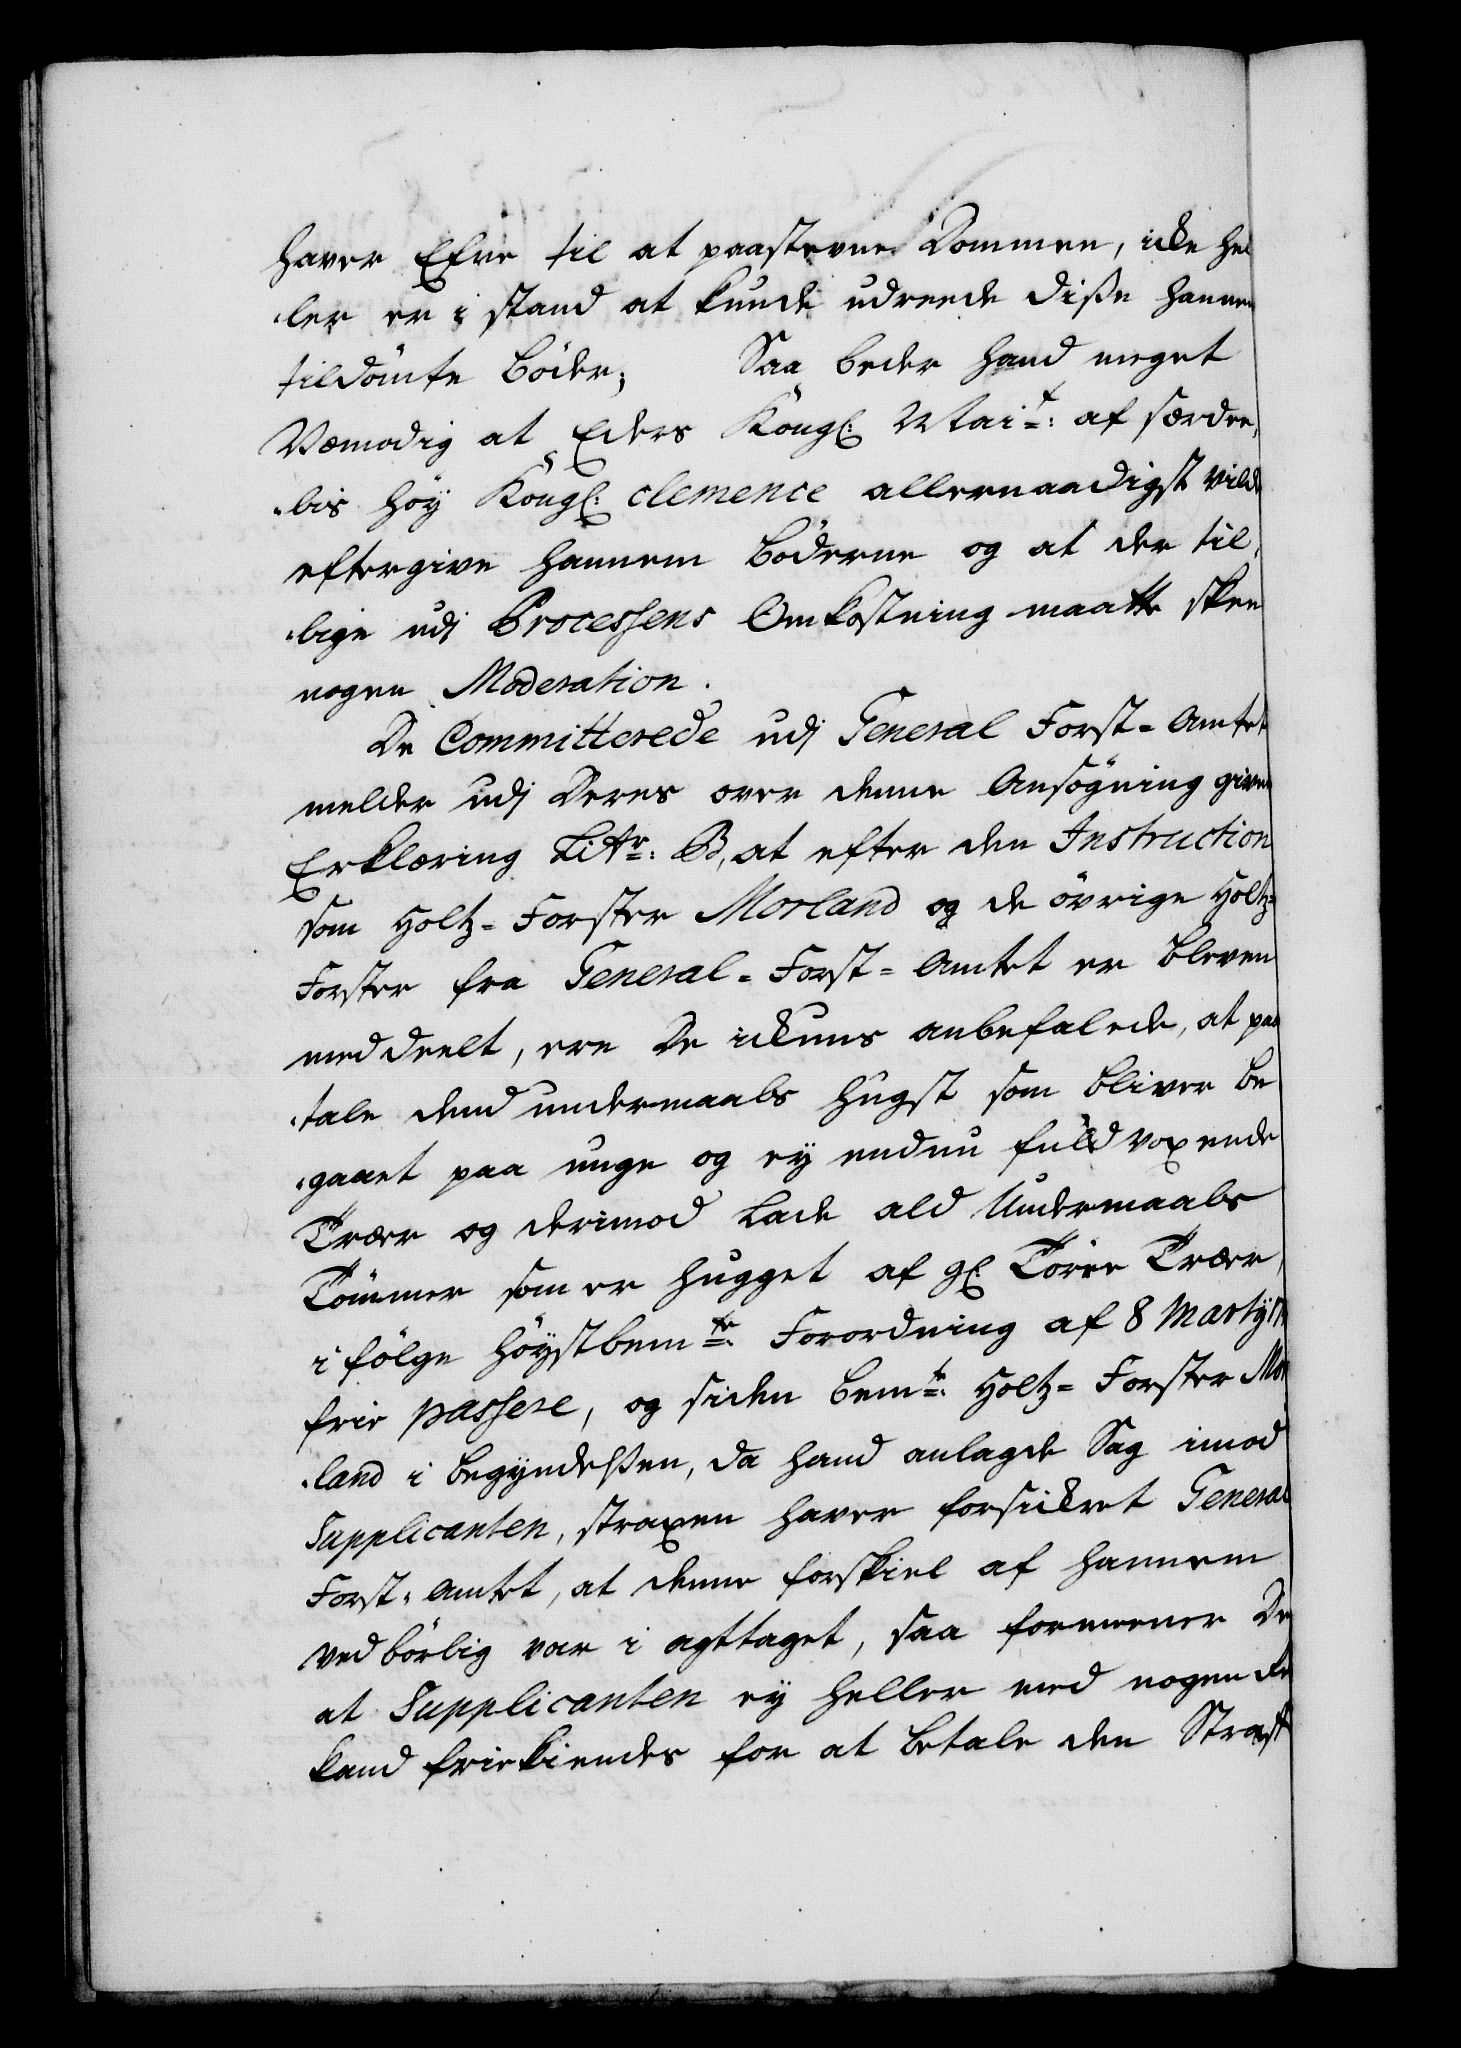 haver Efne til at paastevne Dommen, icke hel
ler er i stand at kunde udreede disse hannem
tildømte Bøder; Saa beder hand meget
Vemodig at Eders Kongl: Mai:t af særdee,
lis høy Kongl: clemence allernaadigst vilde
eftergive hannem Bøderne og at der til,
lige udj Processens Omkostning maatte skee
nogen Moderation.
De Committerede udj General Forst-Amtet
melder udj Deres over denne Ansøgning given
Erklæring Litr: B, at efter den Instruction
som Holtz-Forster Morland og de øvrige Holtz-
Forster fra General-Forst-Amtet er bleven
meddeelt, ere De ickuns anbefalede, at paa
tale dend undermaals hugst som bliver be
gaaet paa unge og ey endnu fuldvoxende
Træer og derimod lade ald Undermaals
Tømmer som er hugget af gl: Tørre Træer,
i følge høystbemte: Forordning af 8 Martij
frie passere, og siden bemte: Holtz-Forster Mor
land i begyndelsen, da hand anlagde Sag imod
Supplicanten, straxen haver forsickret General
Forst-Amtet, at denne forskiel af hannem
vedbørlig var i agttaget, saa formeener De
at Supplicanten ey heller med nogen
kand friekiendes for at betale den Straf